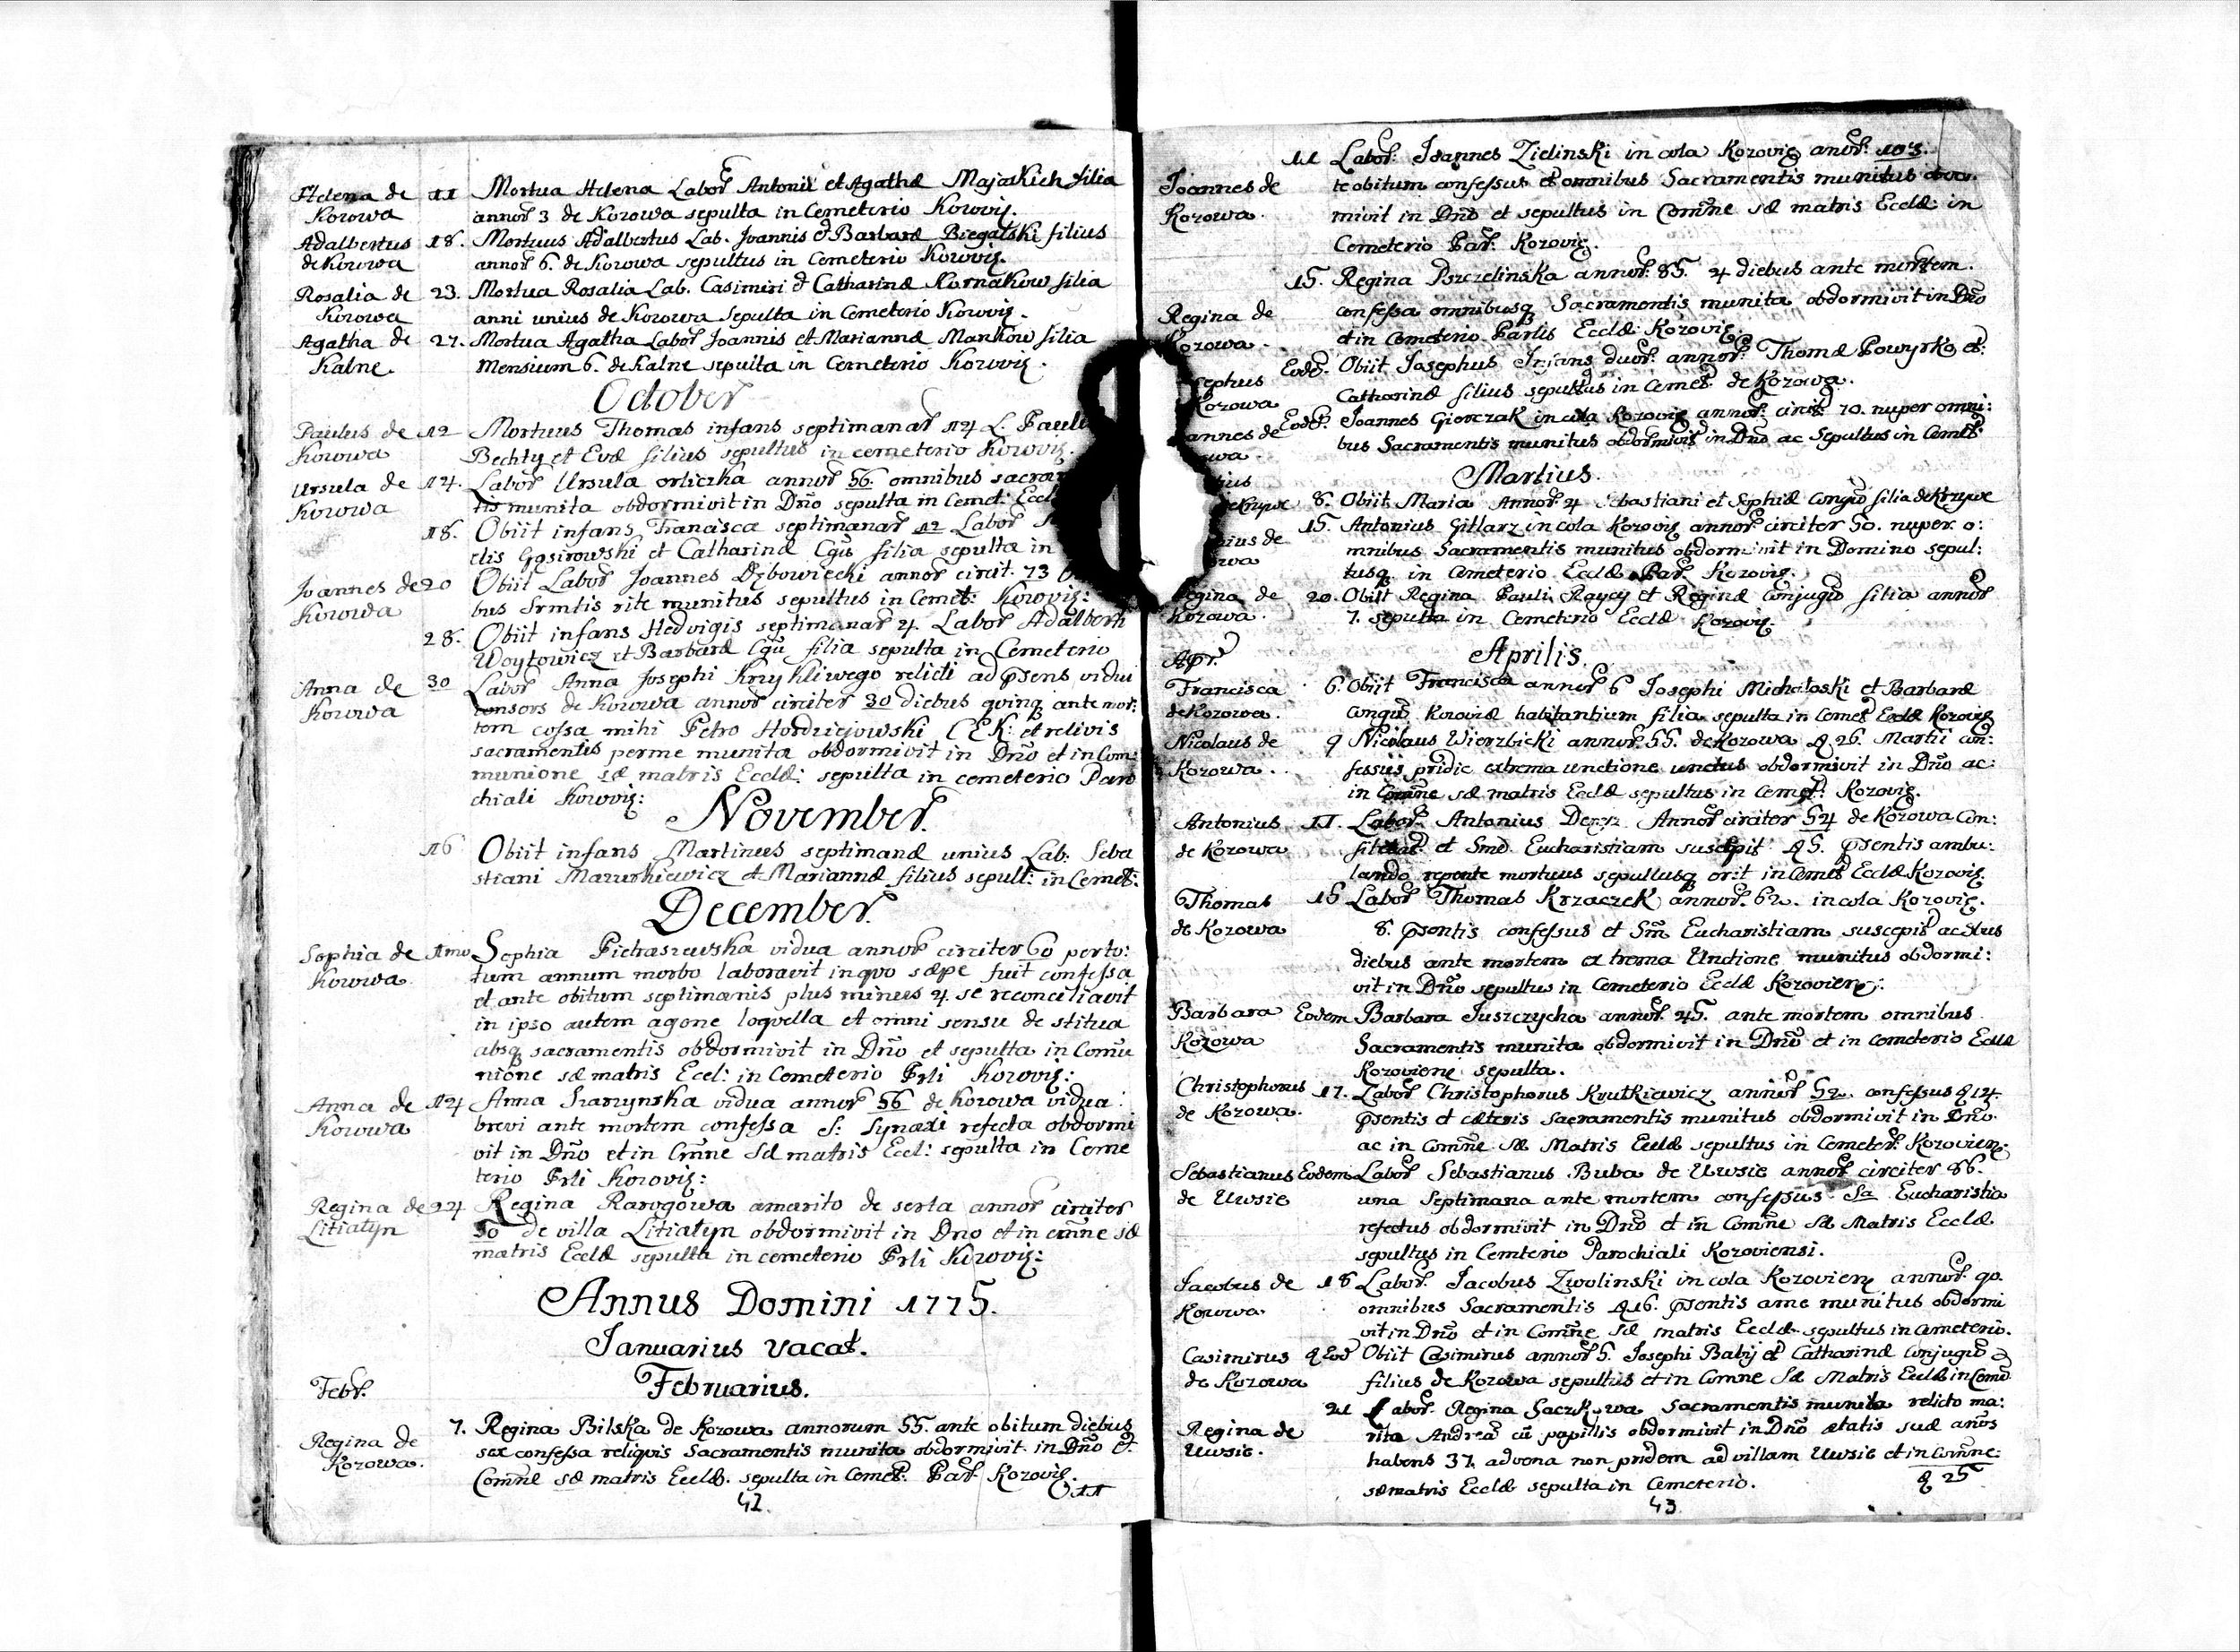 Helena de 11 Mortua Helena Labor Antonii et Agathæ Majatkich filia
Kozowa annor 3 de Kozowa sepulta in Cemeterio Kozoviẽ.
Adalbertus 18. Mortuus Adalbertus Lab. Joannis et Barbaræ Biegalski filius
de Kozowa annor 6. de Kozowa sepultus in Cemeterio Kozoviẽ.
Rosalia de 23. Mortua Rosalia Lab. Casimiri et Catharinæ Kornakow filia
Kozowa anni unius de Kozowa sepulta in Cemeterio Kozoviẽ.
Agatha de 27. Mortua Agatha Labor Joannis et Mariannæ Mankow filia
Kalne. Mensium 6. de Kalne sepulta in Cemeterio Kozoviẽ.
October
Paulus de 12 Mortuus Thomas infans septimanar 14 L. Pauli
Kozowa Bechty et Evæ filius sepultus in cemeterio Kozoviẽ.
Ursula de 14. Labor Ursula orliczka annor 56. omnibus sacra
Kozowa tis munita obdormivit in Dño sepulta in Cemet: Eccl
18. Obiit infans Francisca septimanar 12 Labor
elis Gąsirowski et Catharinæ Cgũ filia sepulta in
Joannes de 20 Obiit Labor Joannes Dębowiecki annor circit. 73
Kozowa bus Srmtis rite munitus sepultus in Cemet: Kozoviẽ:
28. Obiit infans Hedvigis septimanar 4. Labor Adalberti
Woytowicz et Barbaræ Cgũ filia sepulta in Cemeterio
Anna de 30 Labor Anna Josephi Knykliwego relicti ad psens vidui
Kozowa consors de Kozowa annor circiter 30 diebus quinq ante mor:
tem cofssa mihi Petro CEK: et reliqis
sacramentis perme munita obdormivit in Dño et in Com:
munione sæ matris Ecclæ: sepulta in cemeterio Paro
chiali Kozoviẽ:
November.
16 Obiit infans Martinus septimanæ unius Lab: Seba
stiani Mazurkiewicz et Mariannæ filius sepult: in Cemet:
December.
Sophia de 1mo Sophia Pietraszewska vidua annor circiter 60 per to:
Kozowa. tum annum morbo laboravit in qvo sæpe fuit confessa
et ante obitum septimanis plus minus 4. se reconciliavit
in ipso autem agone loqvella et omni sensu de stitua
absq sacramentis obdormivit in Dño et sepulta in Comũ
nione sæ matris Eccl: in Cemeterio Prli Kozoviẽ:
Anna de 14 Anna vidua annor 56 de Kozowa vidua:
Kozowa brevi ante mortem confessa S: Synaxi refecta obdormi
vit in Dño et in Cmne Sæ matris Eccl: sepulta in Ceme
terio Prli Kozoviẽ:
Regina de 24 Regina Rarogowa a marito de serta annor circiter
Litiatyn 50 de villa Litiatyn obdormivit in Dno et in cmne sæ
matris Ecclæ sepulta in cemeterio Prli Kozoviẽ:
Annus Domini 1775.
Januarius vacat.
Febr. Februarius.
7. Regina Bilska de Kozowa annorum 55. ante obitum diebus
Regina de sex confessa reliquis Sacramentis munita obdormivit in Dño et
Kozowa. Comñe sæ matris Ecclæ. sepulta in Cemet: Par. Kozoviẽ.
11
42.
11 Labor: Joannes Zielinski incola Kozoviẽ annor. 103.
Joannes de te obitum confessus et omnibus Sacramentis munitus
Kozowa. mivit in Dño et sepultus in Comñe sæ matris Ecclæ in
Cemeterio Par: Kozoviẽ.
15. Regina Pszczelinska annor. 85. 4 diebus ante mortem.
Regina de confessa omnibusq Sacramentis munita obdormivit in Dño
Kozowa. et in Cemeterio Parlis Ecclæ: Kozoviẽ.
Eod. Obiit Josephus Infans duor: annor: Thomæ Powyrko et:
sephus Catharinæ filius sepultus in Cemet de Kozowa.
Kozowa
Eod. Joannes Giorczak incola Kozoviẽ annor: circit 70. nuper omni:
annes de bus Sacramentis munitus obdormivit in Dño ac Sepultus in Cemet:
wa.
Martius.
8. Obiit Maria Annor. 4 Sebastiani et Sophiæ Congũ filia de Krzywe
15. Antonius Gitlarz incola Kozoviẽ annor circiter 50. nuper o:
nius de mnibus Sacramentis munitus obdormivit in Domino sepul:
owa tusq. in Cemeterio Ecclæ Par. Kozoviẽ.
Regina de 20. Obiit Regina Pauli Raycy et Reginæ Conjugũ filia annor
Kozowa. 7. sepulta in Cemeterio Ecclæ Kozoviẽ.
Apr. Aprilis.
Francisca 6. Obiit Francisca annor 6 Josephi Michałoski et Barbaræ
de Kozowa. Congũ Kozoviæ habitantium filia sepulta in Cemet Ecclæ Kozoviẽ
Nicolaus de 9 Nicolaus Wierzbicki annor. 55. de Kozowa 26. Martii con:
Kozowa. fessus pridie extrema unctione unctus obdormivit in Dño ac:
in Comñe sæ matris Ecclæ sepultus in Cemet: Kozoviẽ.
Antonius 11. Labor. Antonius Annor circiter 54 de Kozowa Con:
de Kozowa et Smã Eucharistiam suscepit 5. psentis ambu:
lando repente mortuus sepultusq erit in Cemet Ecclæ Kozoviẽ.
Thomas 16 Labor Thomas Krzaczek annor. 62. incola Kozoviẽ.
de Kozowa 8. psentis confessus et Sm Eucharistiam suscepit ac duo
diebus ante mortem ex trema Unctione munitus obdormi:
vit in Dño sepultus in Cemeterio Ecclæ Kozovien:
Barbara Eodem Barbara Juszczycha annor. 45. ante mortem omnibus
Kozowa Sacramentis munita obdormivit in Dño et in Cemeterio Eccla
Koziovienẽ sepulta.
Christophorus 17. Labor Christophorus Krutkiewicz annor 52. confessus 14.
de Kozowa. psentis et cæteris Sacramentis munitus obdormivit in Dño.
ac in Comñe Sæ Matris Ecclæ sepultus in Cemeter. Kozovien.
Sebastianus Eodem Labor Sebastianus Buba de Uwsie annor circiter 86.
de Uwsie una Septimana ante mortem confessus Sa Eucharistia
refectus obdormivit in Dño et in Comñe Sæ Matris Ecclæ
sepultus in Cemterio Parochiali Kozoviensi.
Jacobus de 18 Labor. Jacobus Zwolinski incola Kozovien annor. 90.
Kozowa. omnibus Sacramentis 16. psentis a me munitus obdormi
vit in Dño et in Comñe Sæ matris Ecclæ sepultus in Cemeterio.
Casimirus Eod Obiit Casimirus annor 5. Josephi Babij et Catharinæ Conjugũ
de Kozowa filius de Kozowa sepultus et in Comne Sæ Matris Ecclæ in Cem
21 Labor. Regina Saczkowa Sacramentis munita relicto ma:
Regina de rito Andrea cũ papillis obdormivit in Dño ætatis suæ anõs
Uwsie. habens 37. advena non pridem ad villam Uwsie et in Comñe:
sæ matris Ecclæ sepulta in Cemeterio.
25
43.